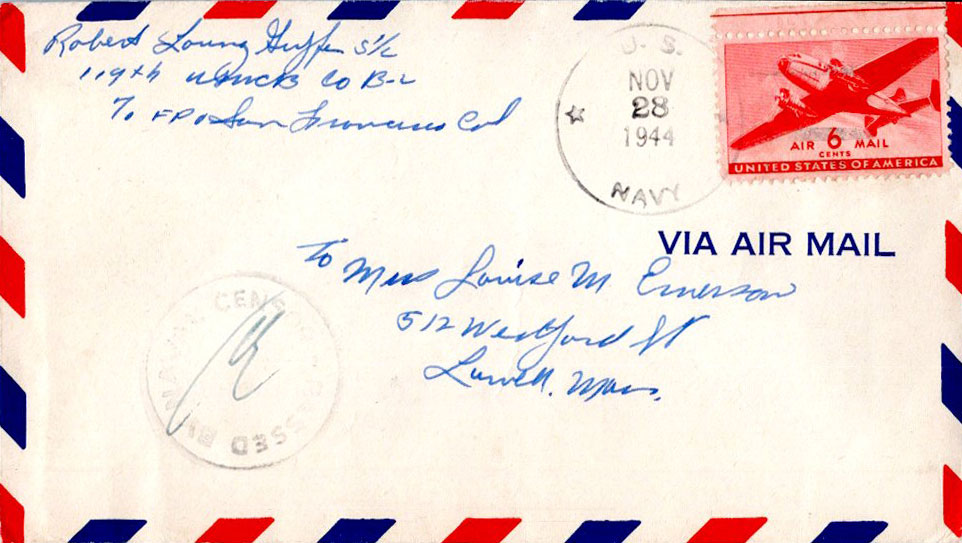 Robert Young S1/c
119th USNCB Co B-2
℅ FPO San Francisco Cal
U. S.
NOV
28
1944
NAVY
AIR 6 MAIL
CENTS
UNITED STATES OF AMERICA
VIA AIR MAIL
To Miss Louise M Emerson
512 Westford St
Lowell, Mass.
PASSED BY NAVAL CENSOR